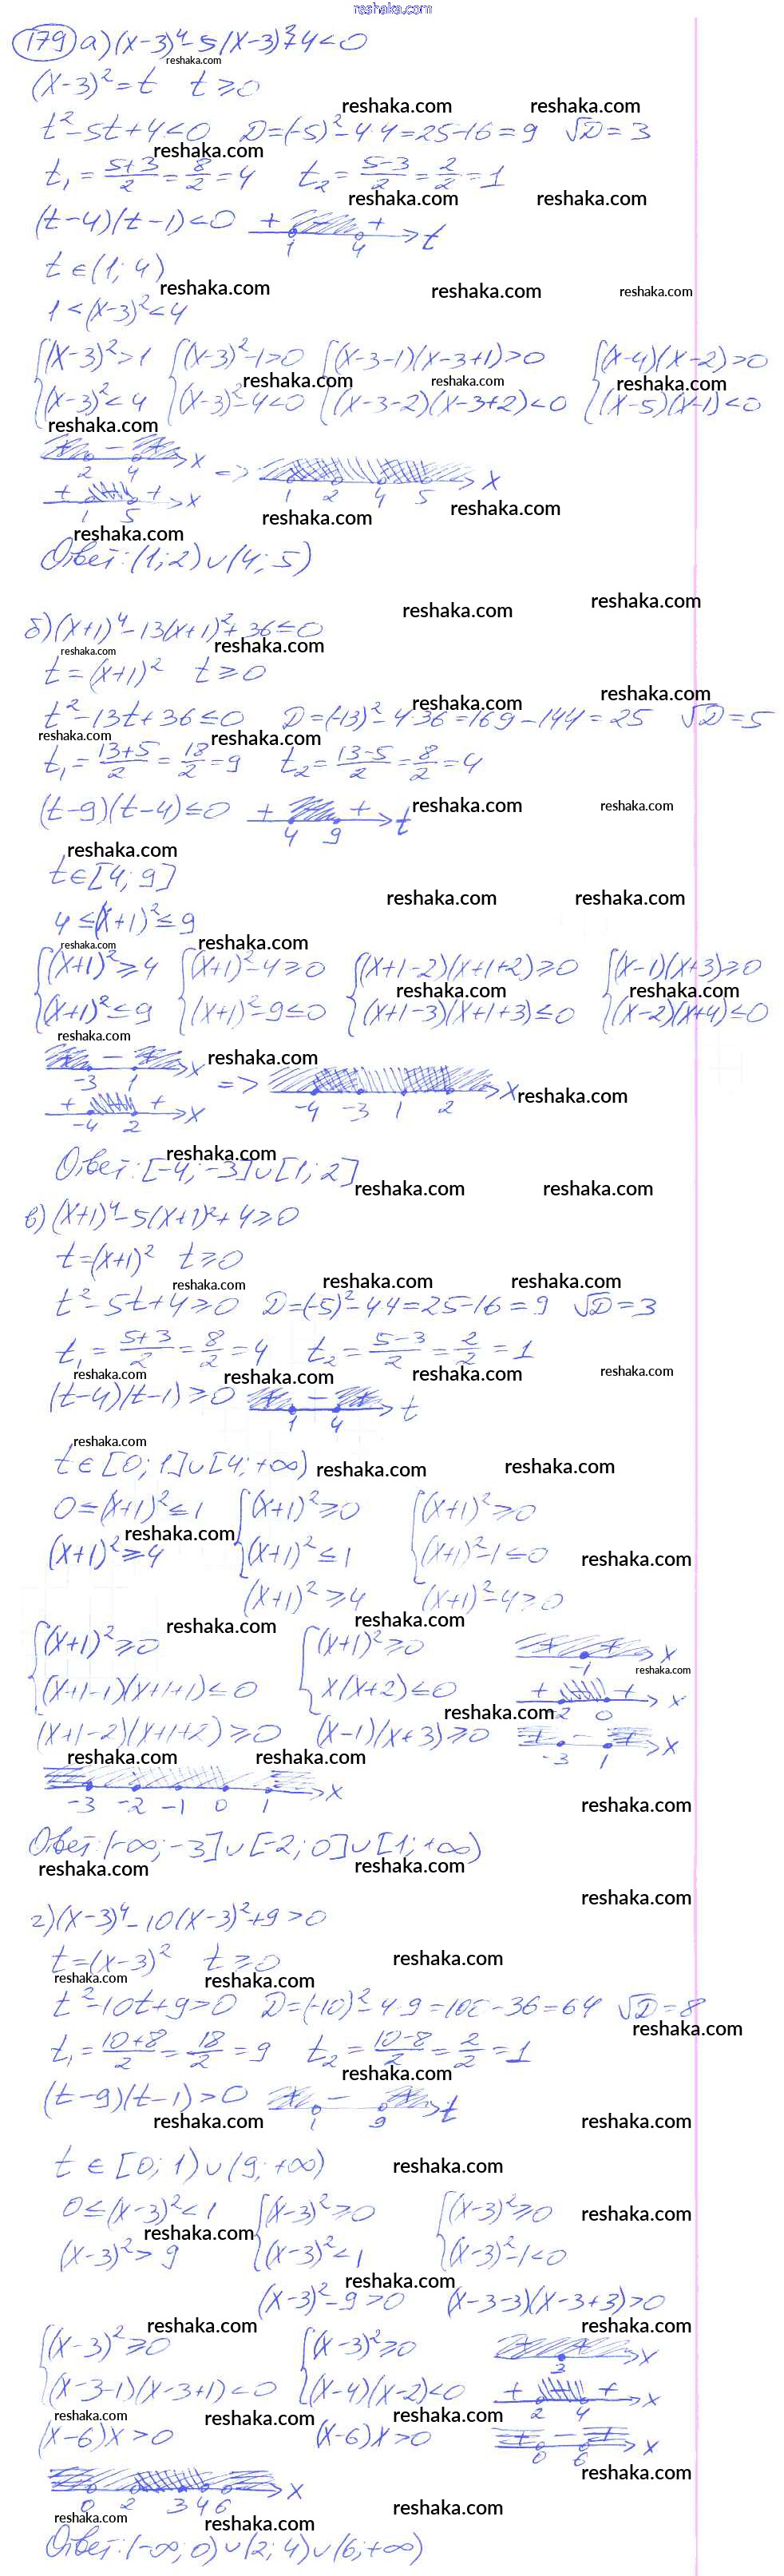 reshaka.com
179 а) (x-3)⁴-5(x-3)²+4<0
(x-3)²=t t≥0
t²-5t+4<0 D=(-5)²-4·4=25-16=9 √D=3
t₁=(5+3)/2=8/2=4 t₂=(5-3)/2=2/2=1
(t-4)(t-1)<0 + + 1 4 t
t∈(1;4)
1<(x-3)²<4
{(x-3)²>1 {(x-3)²-1>0 {(x-3-1)(x-3+1)>0 {(x-4)(x-2)>0
{(x-3)²<4 {(x-3)²-4<0 {(x-3-2)(x-3+2)<0 {(x-5)(x-1)<0
+ - + 2 4 x => 1 2 4 5 x
+ + 1 5 x
Ответ: (1;2)∪(4;5)
б) (x+1)⁴-13(x+1)²+36≤0
t=(x+1)² t≥0
t²-13t+36≤0 D=(-13)²-4·36=169-144=25 √D=5
t₁=(13+5)/2=18/2=9 t₂=(13-5)/2=8/2=4
(t-9)(t-4)≤0 + + 4 9 t
t∈[4;9]
4≤(x+1)²≤9
{(x+1)²≥4 {(x+1)²-4≥0 {(x+1-2)(x+1+2)≥0 {(x-1)(x+3)≥0
{(x+1)²≤9 {(x+1)²-9≤0 {(x+1-3)(x+1+3)≤0 {(x-2)(x+4)≤0
+ - + -3 1 x => -4 -3 1 2 x
+ + -4 2 x
Ответ: [-4;-3]∪[1;2]
в) (x+1)⁴-5(x+1)²+4≥0
t=(x+1)² t≥0
t²-5t+4≥0 D=(-5)²-4·4=25-16=9 √D=3
t₁=(5+3)/2=8/2=4 t₂=(5-3)/2=2/2=1
(t-4)(t-1)≥0 - 1 4 t
t∈[0;1]∪[4;+∞)
0≤(x+1)²≤1 {(x+1)²≥0 {(x+1)²≥0
(x+1)²≥4 {(x+1)²≤1 {(x+1)²-1≤0
(x+1)²≥4 (x+1)²-4≥0
{(x+1)²≥0 {(x+1)²≥0 + + -1 x
{(x+1-1)(x+1+1)≤0 {x(x+2)≤0 + + -2 0 x
(x+1-2)(x+1+2)≥0 (x-1)(x+3)≥0 + - + -3 1 x
-3 -2 -1 0 1 x
Ответ: (-∞;-3]∪[-2;0]∪[1;+∞)
г) (x-3)⁴-10(x-3)²+9>0
t=(x-3)² t≥0
t²-10t+9>0 D=(-10)²-4·9=100-36=64 √D=8
t₁=(10+8)/2=18/2=9 t₂=(10-8)/2=2/2=1
(t-9)(t-1)>0 + - + 1 9 t
t∈[0;1)∪(9;+∞)
0≤(x-3)²<1 {(x-3)²≥0 {(x-3)²≥0
(x-3)²>9 {(x-3)²<1 {(x-3)²-1<0
(x-3)²-9>0 (x-3-3)(x-3+3)>0
{(x-3)²≥0 {(x-3)²≥0 + + 3 x
{(x-3-1)(x-3+1)<0 {(x-4)(x-2)<0 + + 2 4 x
(x-6)x>0 (x-6)x>0 + - + 0 6 x
0 2 3 4 6 x
Ответ: (-∞;0)∪(2;4)∪(6;+∞)